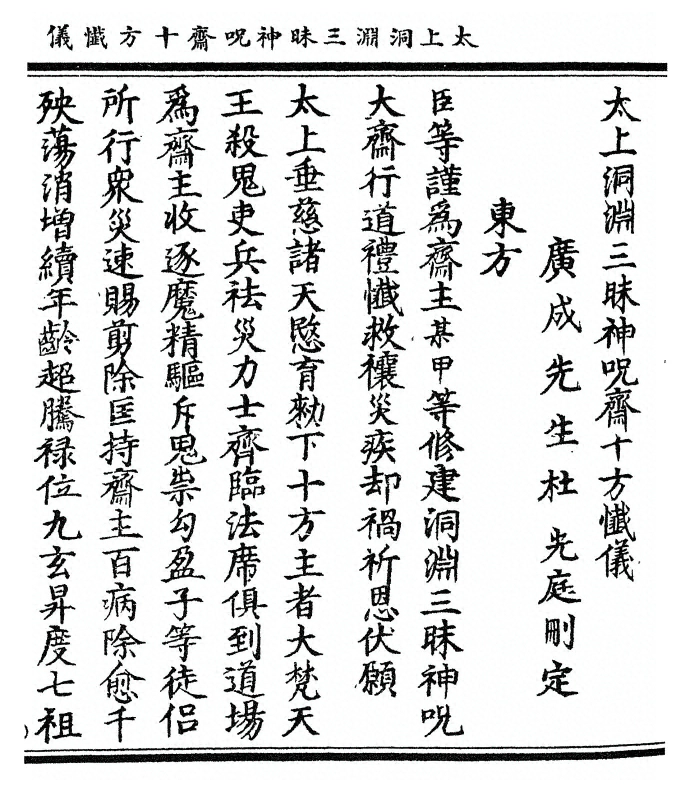 太上洞淵三昧神呪齋十方懺儀
太上洞淵三昧神呪齋十方懺儀
廣成先生杜光庭刪定
東方
臣等謹爲齋主某甲等修建洞淵三昧神呪
大齋行道禮懺救禳災疾却禍祈恩伏願
太上垂慈諸天愍育勑下十方主者大梵天
王殺鬼吏兵祛災力士齊臨法席俱到道場
爲齋主收逐魔精驅斥鬼祟勾盈子等徒侣
所行衆災速賜剪除匡持齋主百病除愈千
殃蕩消增續年齡超騰禄位九玄昇度七祖